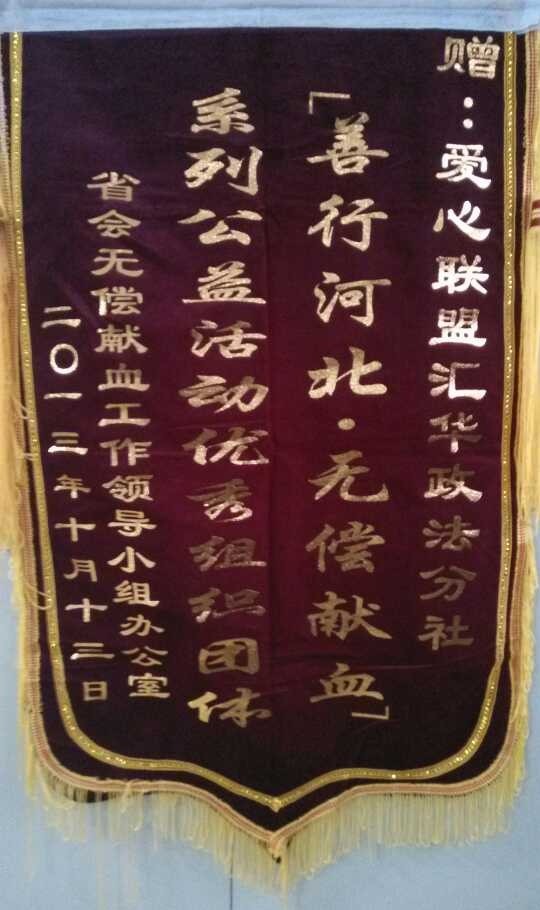 赠：爱心联盟汇华政法分社
「善行河北·无偿献血」
系列公益活动优秀组织团体
省会无偿献血工作领导小组办公室
二〇一三年十月十三日